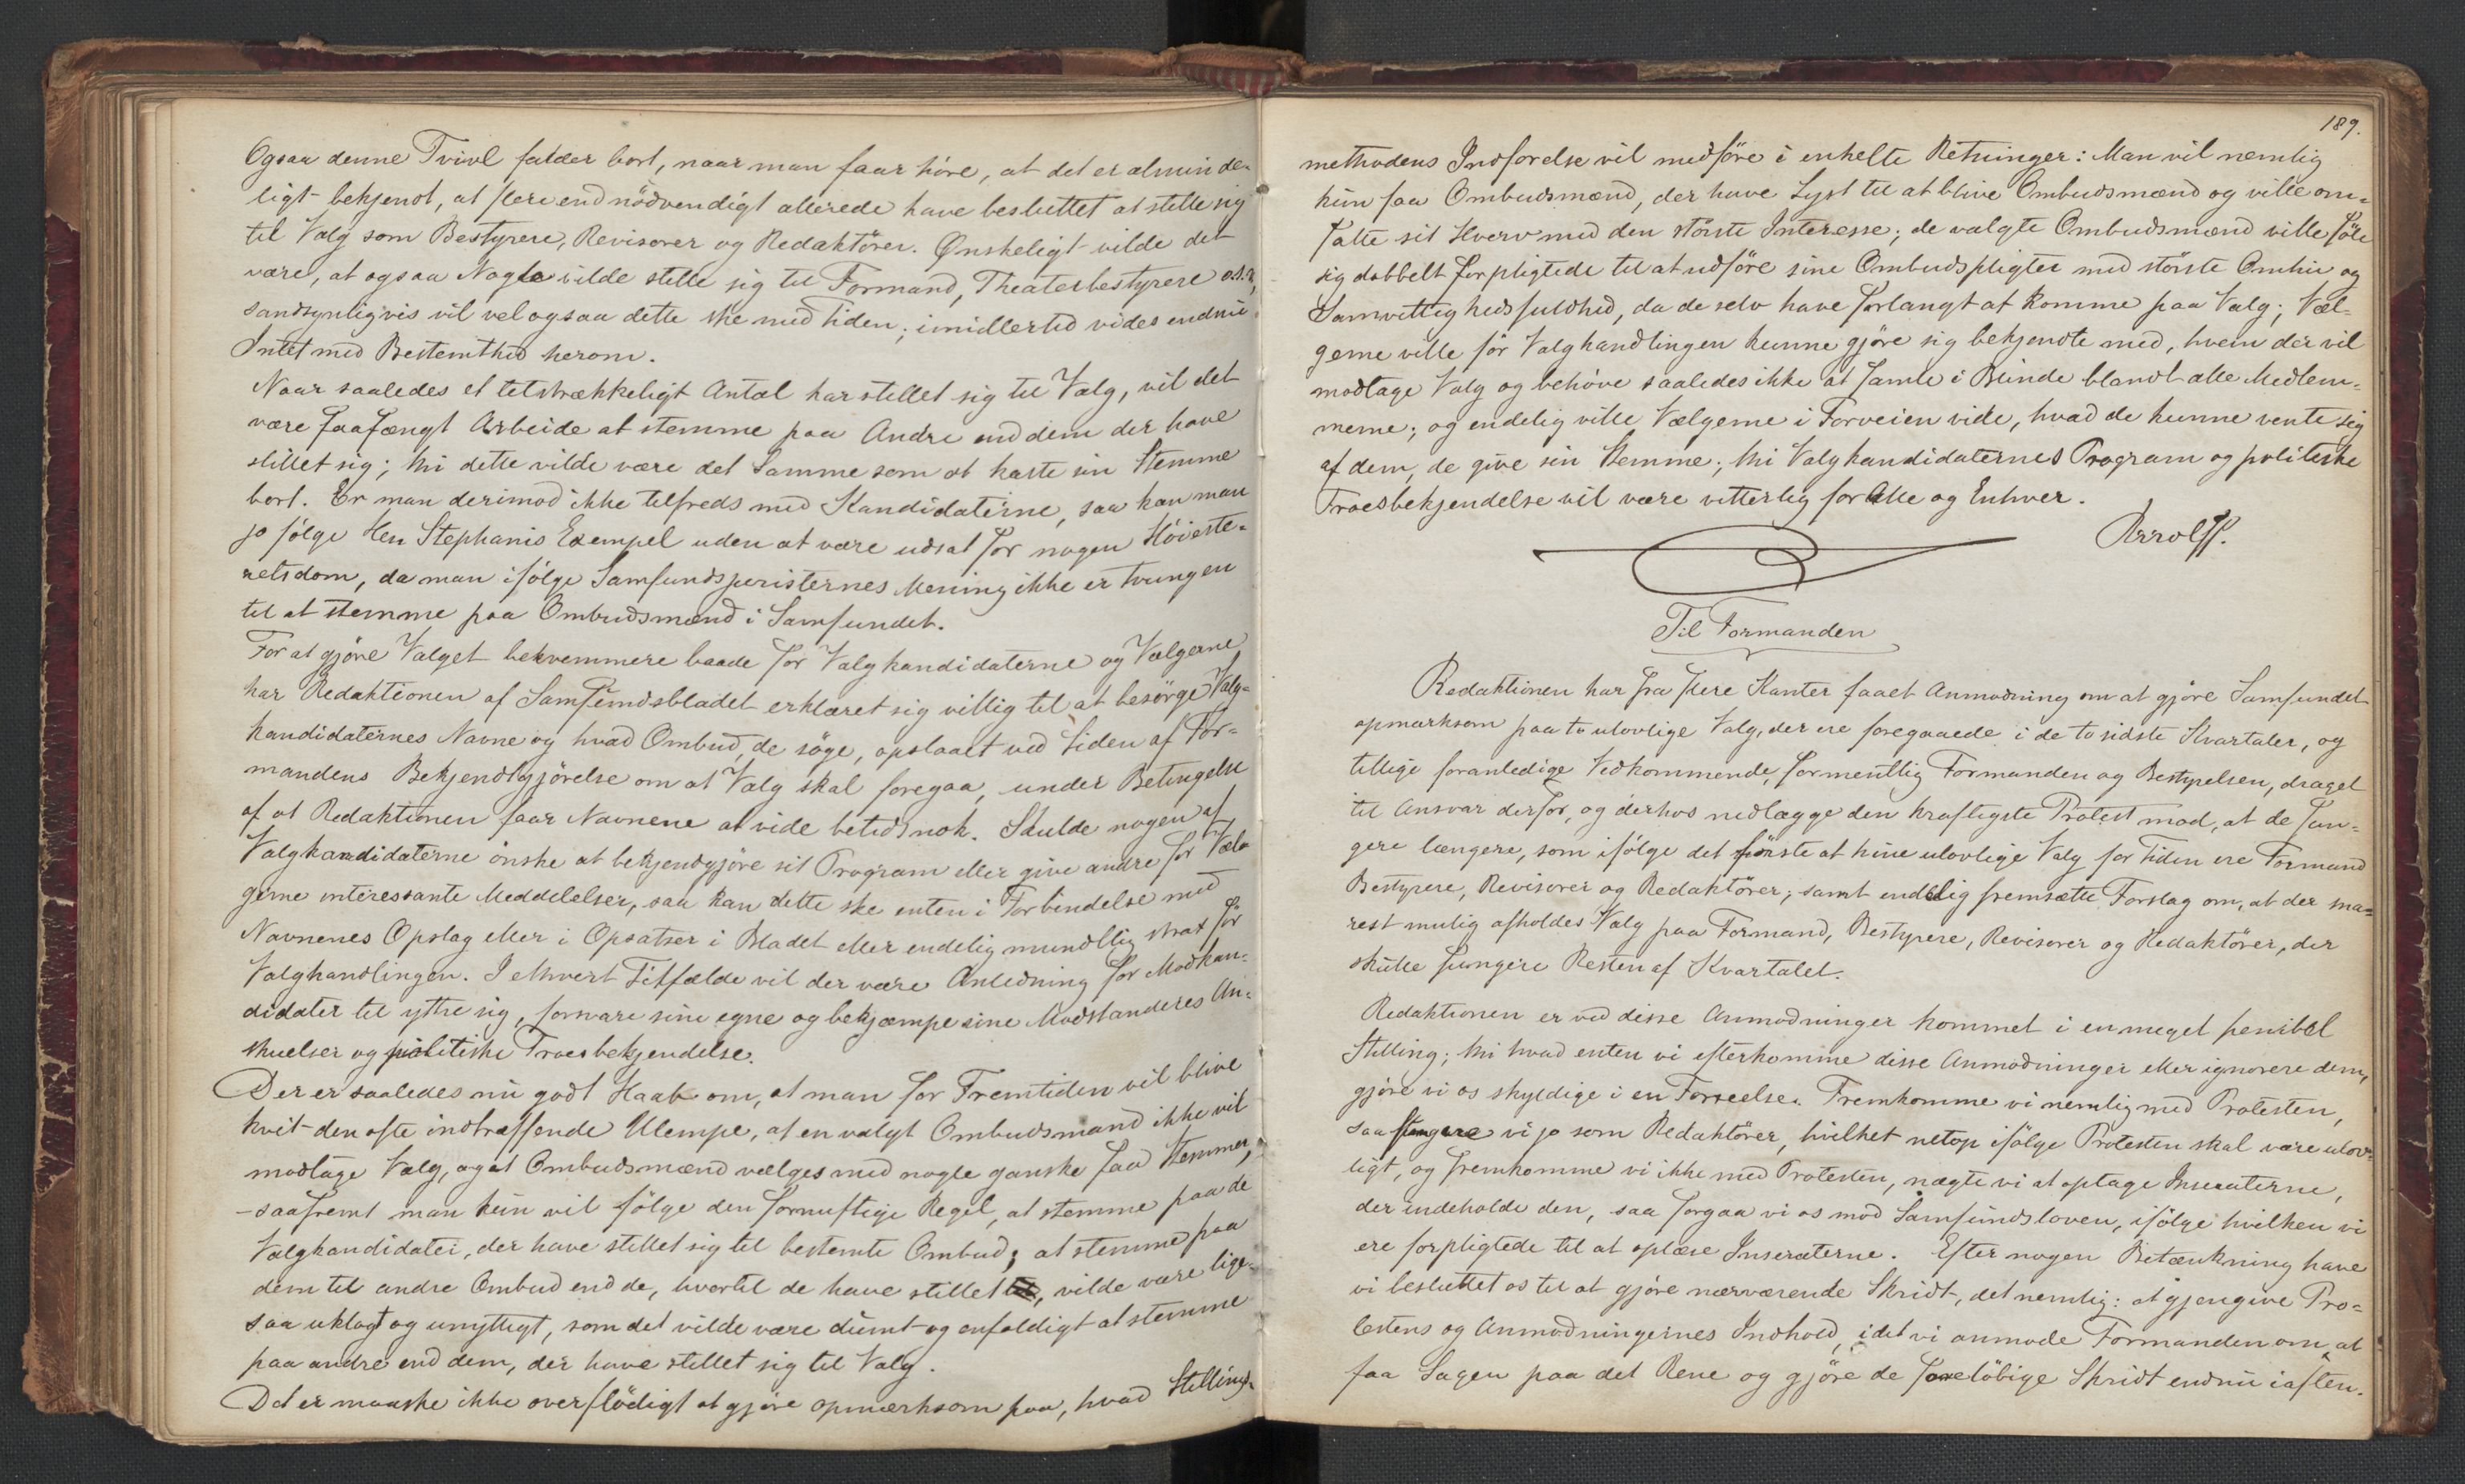 Ogsaa denne Tvivl falder bort, naar man faar höre, at det er alminde-
ligt bekjendt, at flere end nödvendigt allerede have besluttet at stille sig
til Valg som Bestyrere, Revisorer og Redaktörer. Ønskeligt vilde det
være, at ogsaa Nogle vilde stille sig til Formand, Theaterbestyrere o.s.v,
sandsynligvis vil vel ogsaa dette ske med Tiden; imidlertid vides endnu
Intet med Bestemthed herom.
Naar saaledes et tilstrækkeligt Antal har stillet sig til Valg, vil det
være faafængt Arbeide at stemme paa Andre end dem der have
stillet sig; thi dette vilde være det Samme som at kaste sin Stemme
bort. Er man derimod ikke tilfreds med Kandidaterne, saa kan man
jo fölge Hr. Stephanis Exempel uden at være udsat for nogen Höieste-
retsdom, da man ifölge Samfundsjuristernes Mening ikke er tvungen
til at stemme paa Ombudsmænd i Samfundet.
For at gjöre Valget bekvemmere baade for Valgkandidaterne og Vælgerne,
har Redaktionen af Samfundsbladet erklæret sig villig til at besörge Valg-
kandidaternes Navne og hvad Ombud, de söge, opslaaet ved Siden af For-
mandens Bekjendtgjörelse om at Valg skal foregaa, under Betingelse
af at Redaktionen faar Navnene at vide betids nok. Skulde nogen af
Valgkandidaterne önske at bekjendtgjöre sit Program eller give andre for Væl-
gerne interessante Meddelelser, saa kan dette ske enten i Forbindelse med
Navnenes Opslag eller i Opsatser i Bladet eller endelig mundtlig strax för
Valghandlingen. I ethvert Tilfælde vil der være Anledning for Modkan-
didater til yttre sig, forsvare sine egne og bekjæmpe sine Modstanderes An-
skuelser og politiske Troesbekjendelse.
Der er saaledes nu godt Haab om, at man for Fremtiden vil blive
kvit den ofte indtræffende Ulempe, at en valgt Ombudsmand ikke vil
modtage Valg, og at Ombudsmænd vælges med nogle ganske faa Stemmer,
- saafremt man kun vil fölge den fornuftige Regel, at stemme paa de
Valgkandidater, der have stillet sig til bestemte Ombud; at stemme paa
dem til andre Ombud end de, hvortil de have stillet, vilde være lige-
saa uklogt og unyttigt, som det vilde være dumt og enfoldigt at stemme
paa andre end dem, der have stillet sig til Valg.
Det er maaske ikke overflödigt at gjöre opmærksom paa, hvad Stillings-
189.
methodens Indförelse vil medföre i enkelte Retninger: Man vil nemlig
kun faa Ombudsmænd, der have Lyst til at blive Ombudsmænd og ville om-
fatte sit Hverv med den störste Interesse; de valgte Ombudsmænd ville föle
sig dobbelt forpligtede til at udföre sine Ombudspligter med störste Omhu og
Samvittighedsfuldhed, da de selv have forlangt at komme paa Valg; Væl-
gerne ville för Valghandlingen kunne gjöre sig bekjendte med, hvem der vil
modtage Valg og behöve saaledes ikke at famle i Blinde blandt alle Medlem-
merne; og endelig ville Vælgerne i Forveien vide, hvad de kunne vente sig
af dem, de give sin Stemme; thi Valgkandidaternes Program og politiske
Troesbekjendelse vil være vitterlig for Alle og Enhver.
Til Formanden
Redaktionen har fra flere Kanter faaet Anmodning om at gjöre Samfundet
opmærksom paa to ulovlige Valg, der ere foregaaede i de to sidste Kvartaler, og
tillige foranledige Vedkommende, formentlig Formanden og Bestyrelsen, draget
til Ansvar derfor, og derhos nedlægge den kraftigste Protest mod, at de fun-
gere længere, som ifölge det förste at hine ulovlige Valg for Tiden ere Formand
Bestyrere, Revisorer og Redaktörer; samt endelig fremsætte Forslag om, at der sna-
rest mulig afholdes Valg paa Formand, Bestyrere, Revisorer og Redaktörer, der
skulle fungere Resten af Kvartalet.
Redaktionen er ved disse Anmodninger kommet i en meget penibel
Stilling; thi hvad enten vi efterkomme disse Anmodninger eller ignorere dem,
gjöre vi os skyldige i en Forseelse. Fremkomme vi nemlig med Protesten,
saa fungere vi jo som Redaktörer, hvilket netop ifölge Protesten skal være ulov-
ligt, og fremkomme vi ikke med Protesten, nægte vi at optage Inseraterne,
der indeholde den, saa forgaa vi os mod Samfundsloven, ifölge hvilken vi
ere forpligtede til at oplæse Inseraterne. Efter nogen Betænkning have
vi besluttet os til at gjöre nærværende Skridt, det nemlig: at gjengive Pro-
testens og Anmodningernes Indhold, idet vi anmode Formanden om, at
faa Sagen paa det Rene og gjöre de forelöbige Skridt endnu iaften.